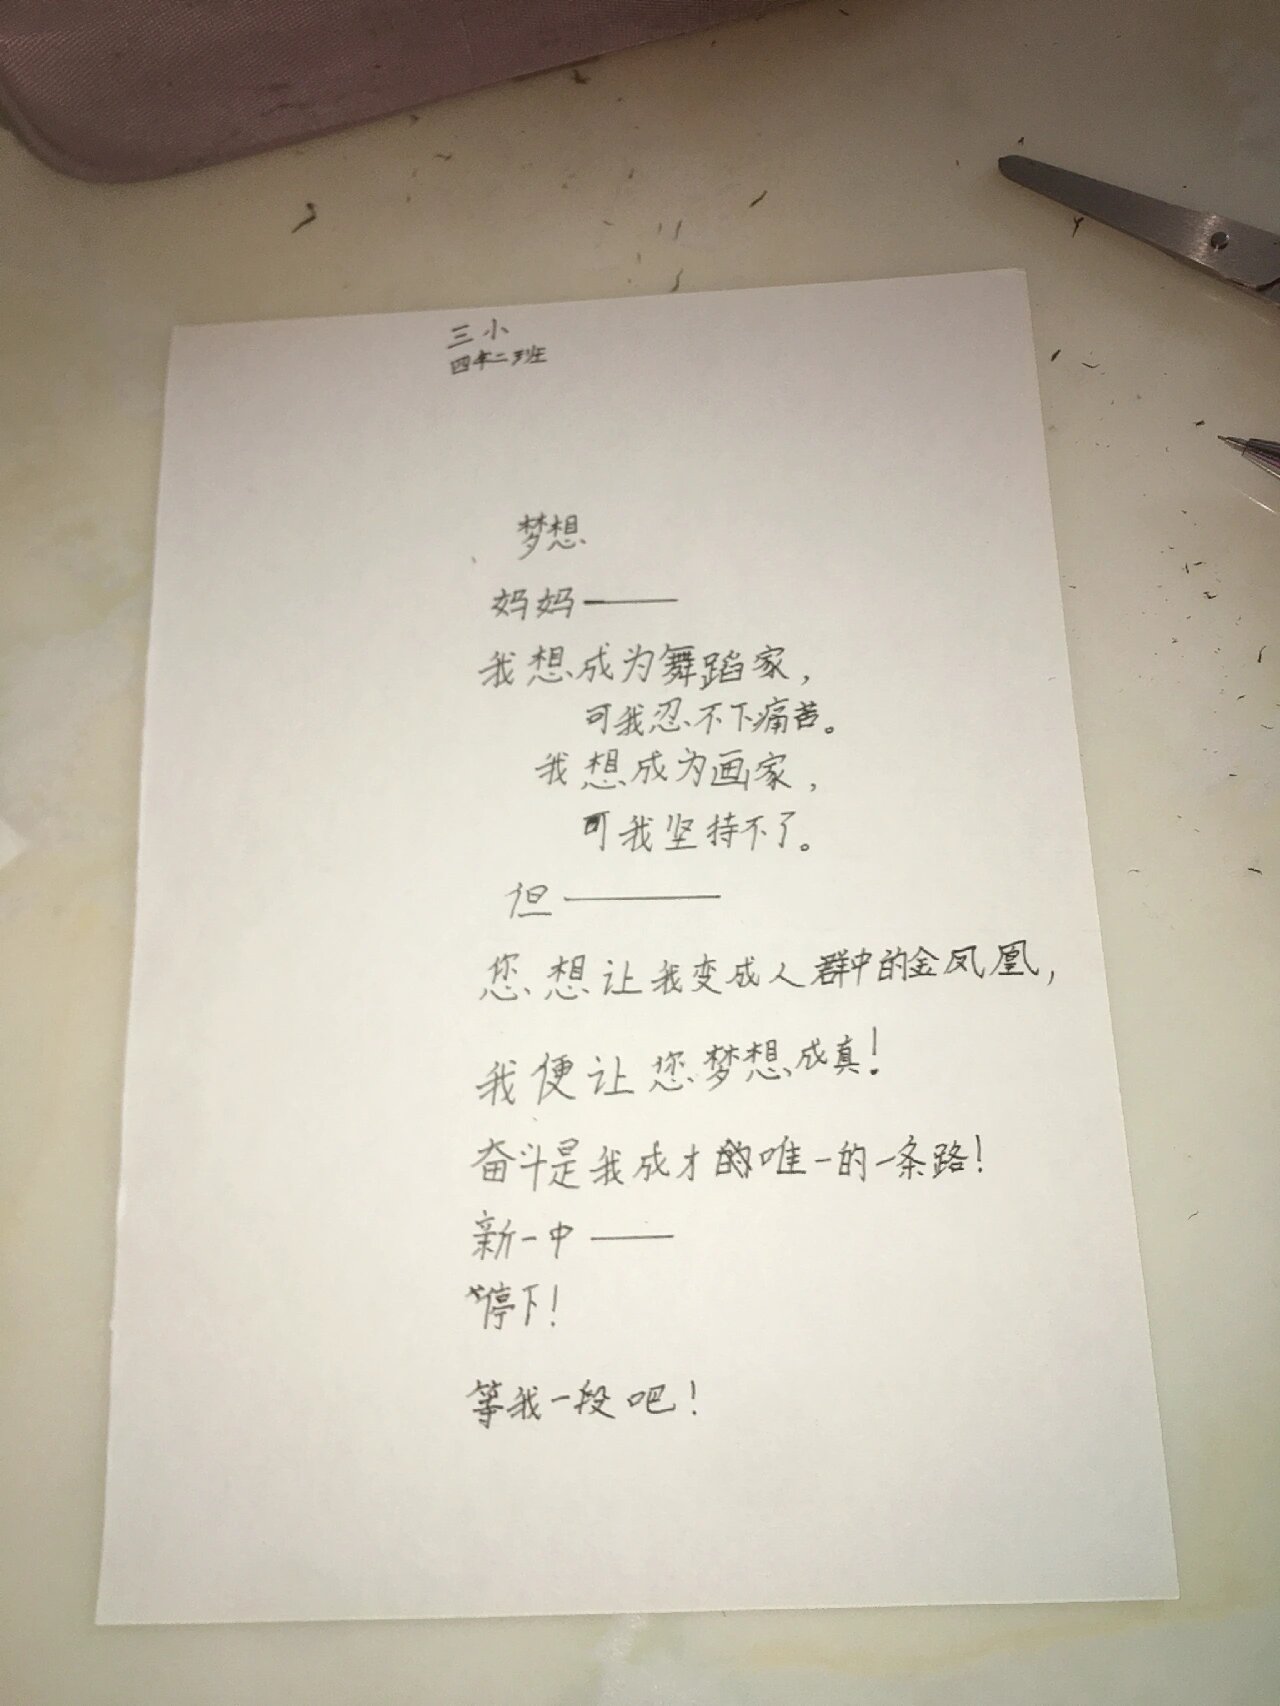 三小
四年二班
梦想
妈妈——
我想成为舞蹈家，
可我忍不下痛苦。
我想成为画家，
可我坚持不了。
但——
您想让我变成人群中的金凤凰，
我便让您梦想成真！
奋斗是我成才的唯一的一条路！
新一中——
停下！
等我一段吧！